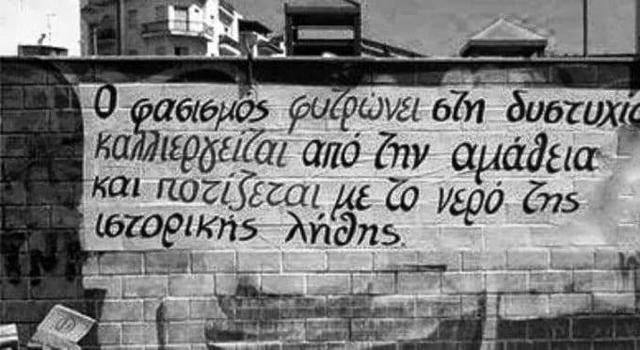 Ο φασισμός φυτρώνει στη δυστυχία
καλλιεργείται από την αμάθεια
και ποτίζεται με το νερό της
ιστορικής λήθης